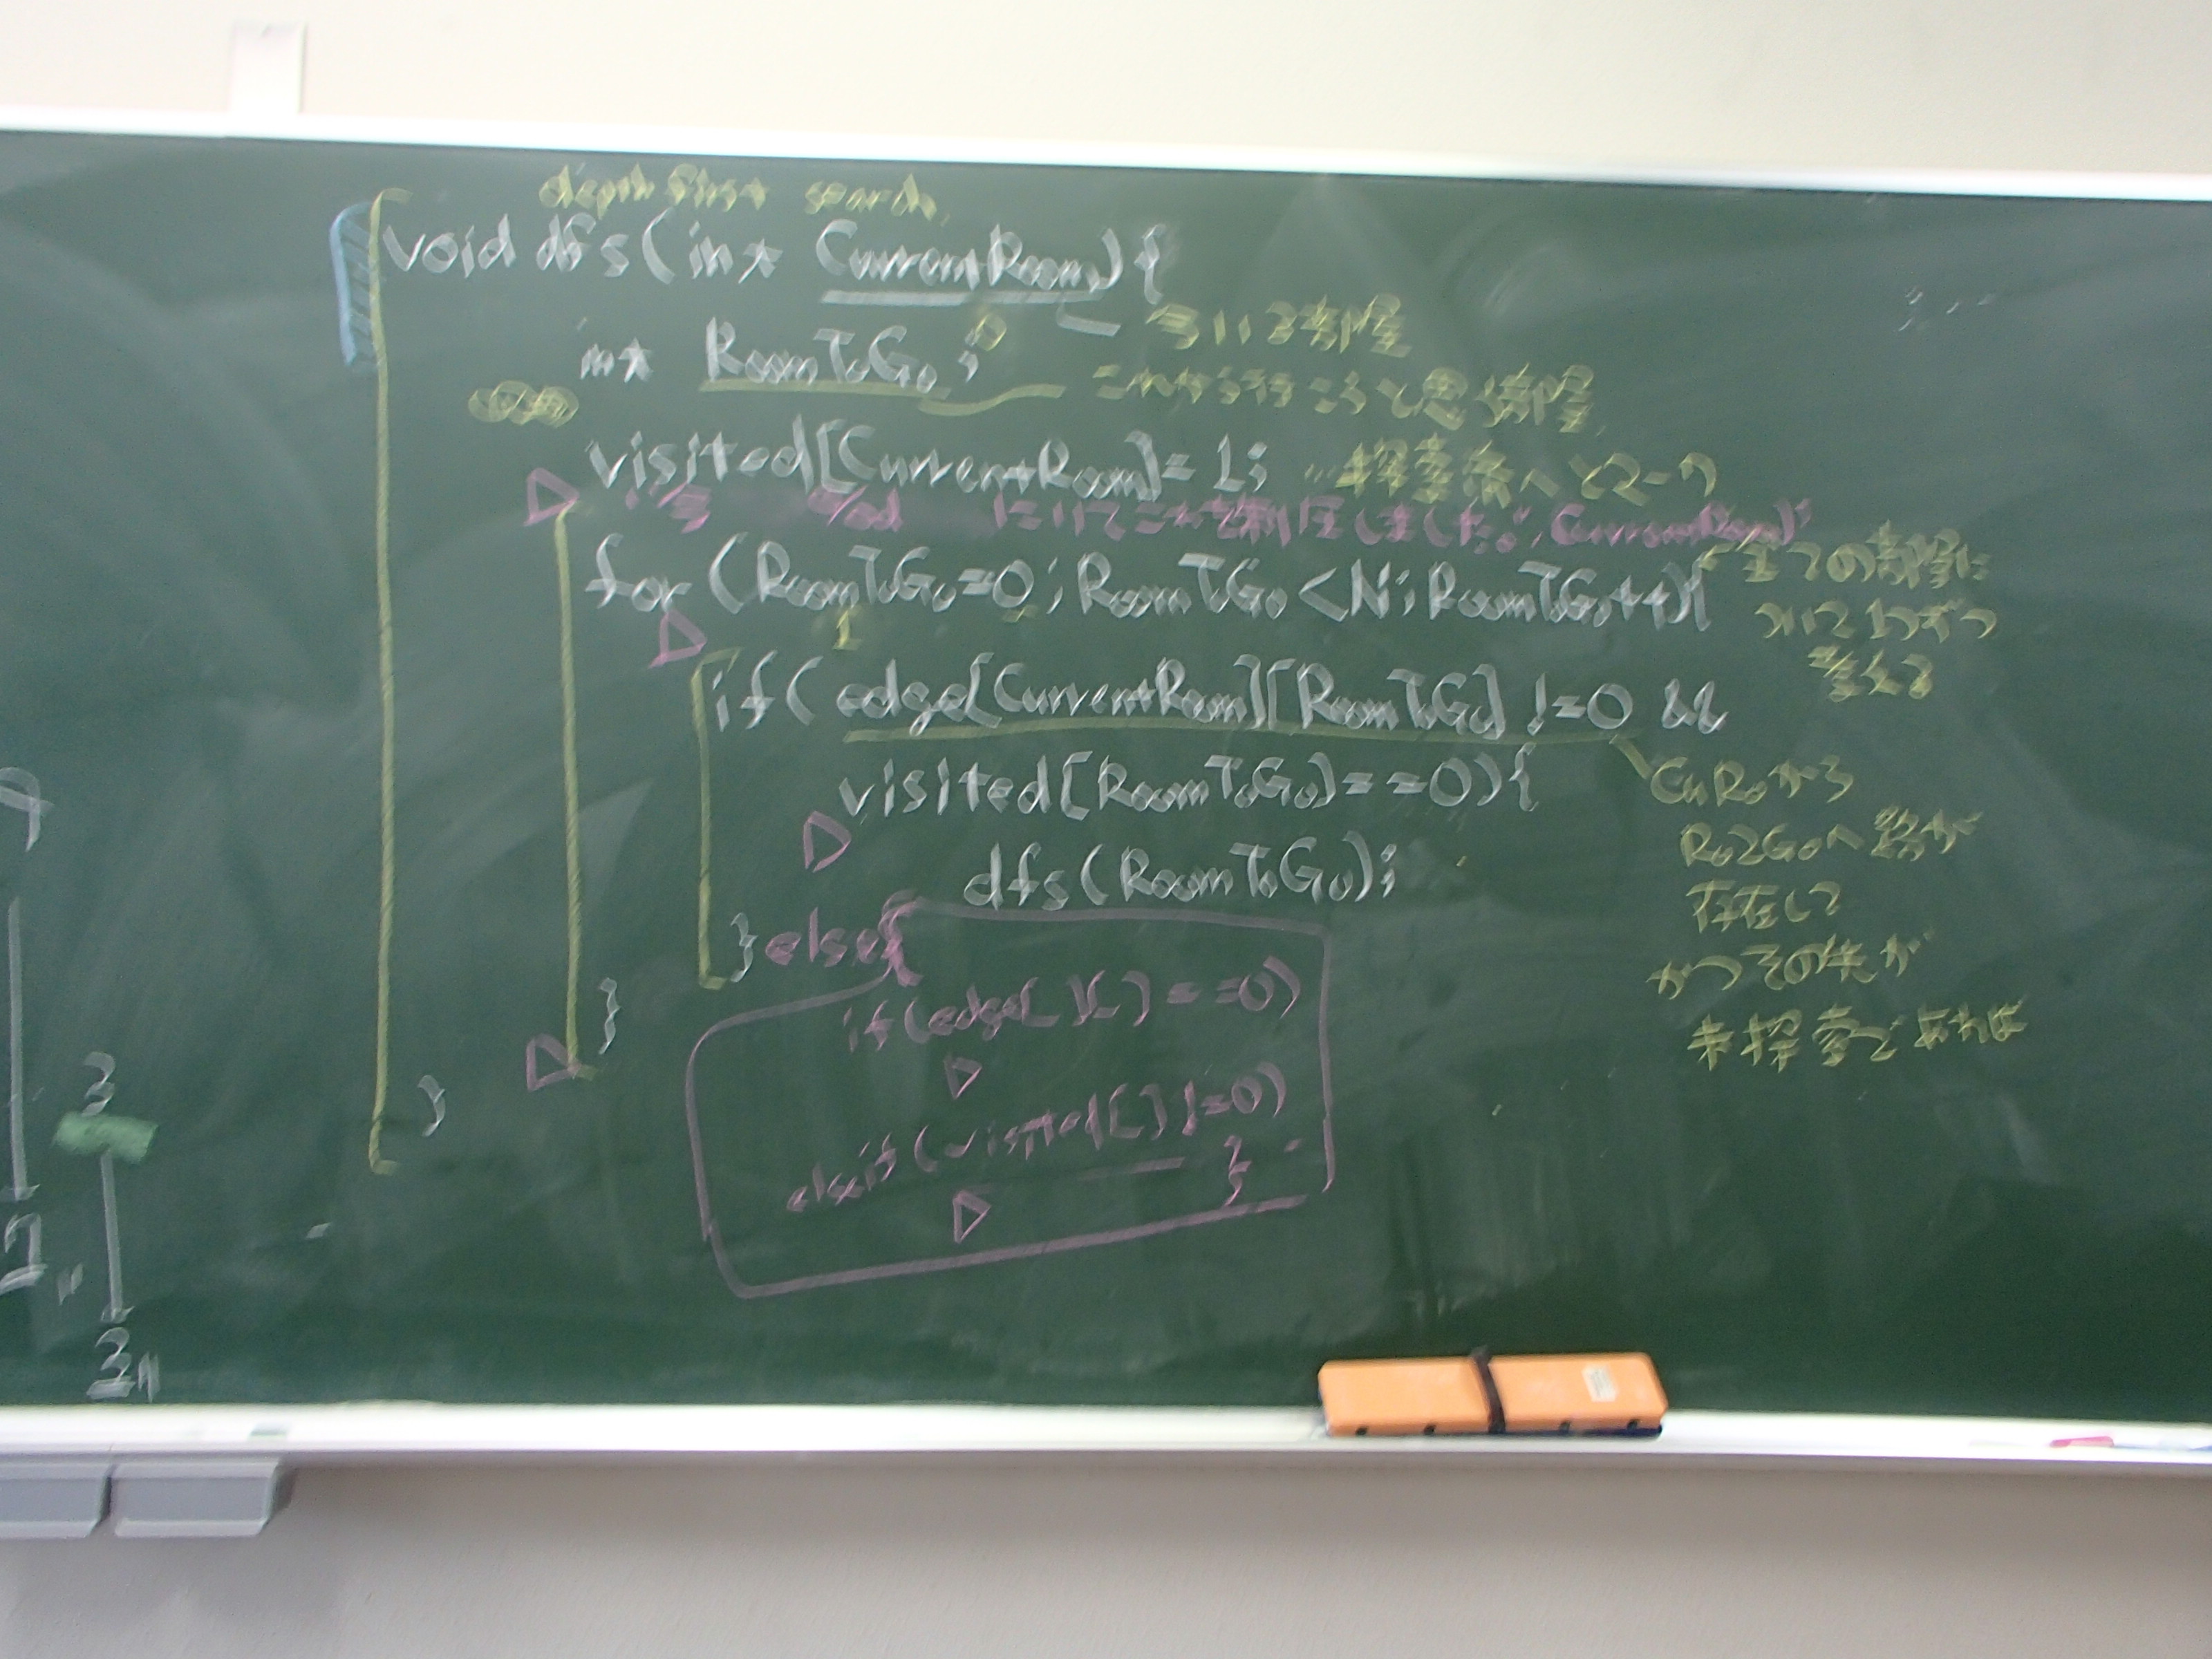 depth first search
void dfs(int CurrentRoom){
今いる部屋
int RoomToGo;
これから行こうと思う部屋
visited[CurrentRoom]=1; …探索済へとマーク
今 %d にいてここを制圧しました。", CurrentRoom)
for (RoomToGo=0; RoomToGo<N; RoomToGo++){
1
全ての部屋に
ついて1つずつ
考える
if( edge[CurrentRoom][RoomToGo] !=0 &&
visited[RoomToGo]==0){
CuRoから
Ro2Goへ路が
存在して
かつその先が
未探索であれば
dfs(RoomToGo);
}else{
if(edge[ ][ ]==0)
else if(visited[ ] !=0)
}
}
}
3
3